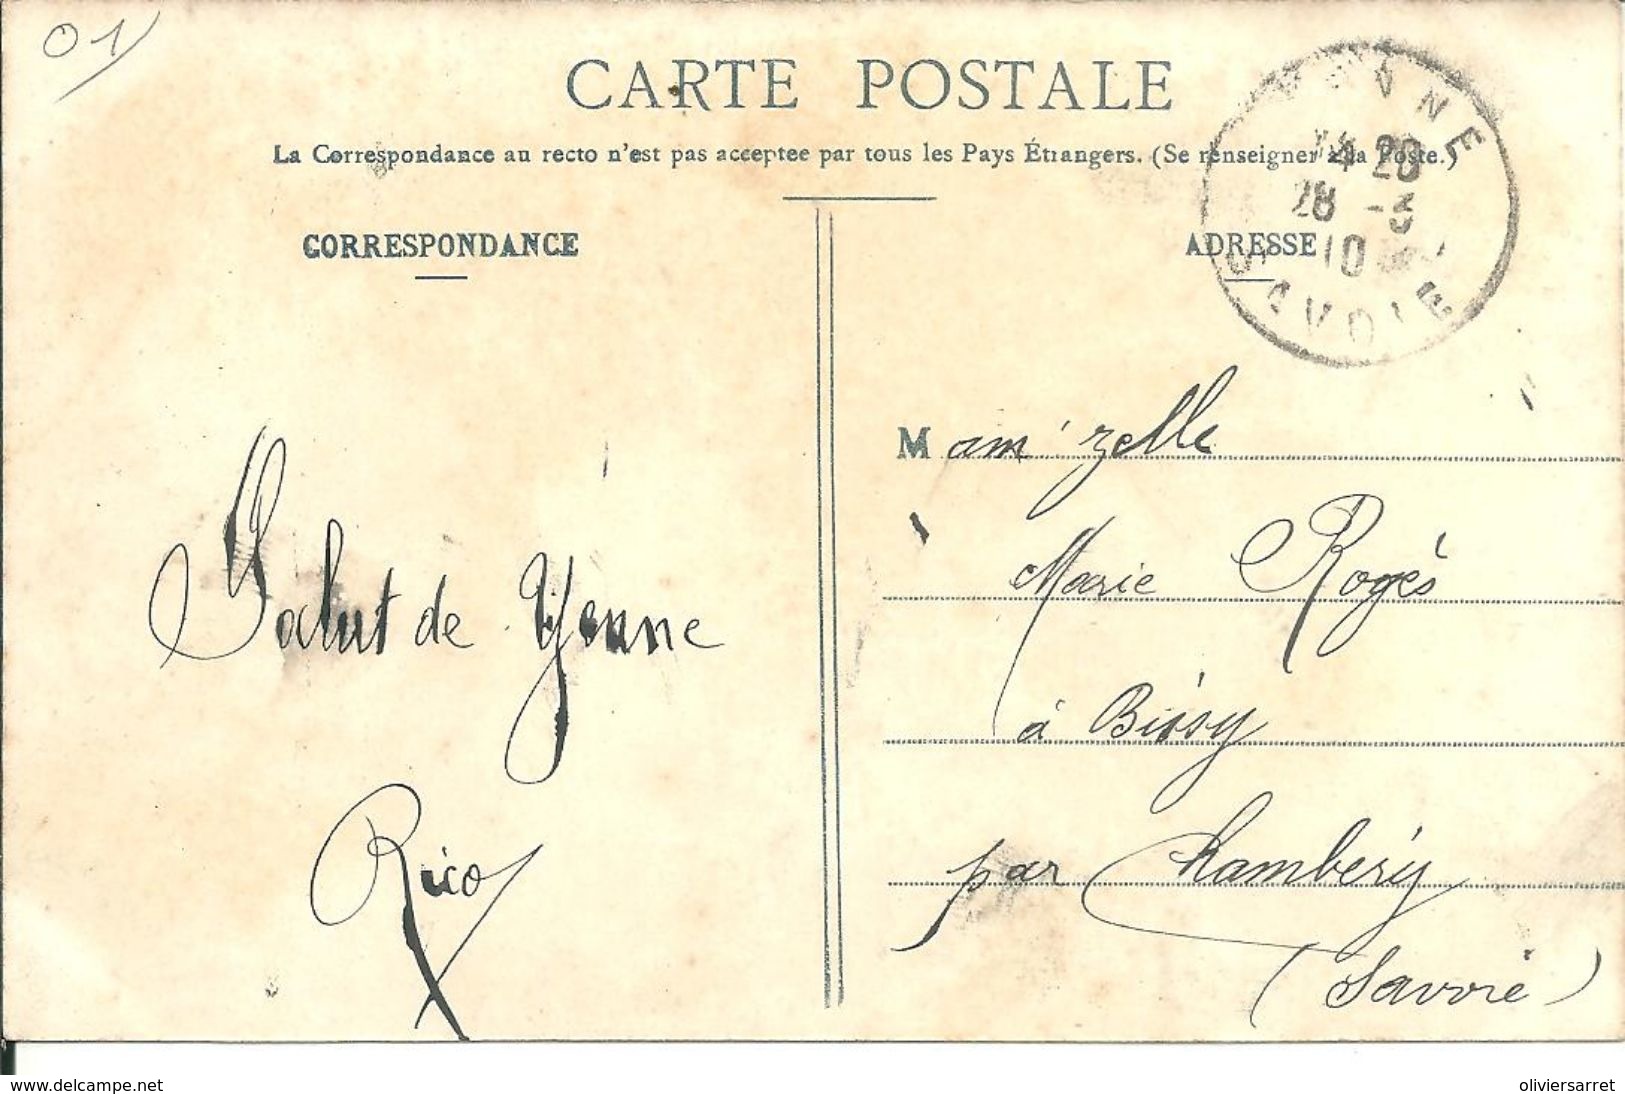 01
CARTE POSTALE
La Correspondance au recto n'est pas acceptee par tous les Pays Étrangers. (Se renseigner à la Poste.)
CORRESPONDANCE
Salut de Yenne
Rico
ADRESSE
YENNE
14 20
28 -3
10
SAVOIE
Mam'zelle
Marie Rogés
à Bissy
par Chambéry
(Savoie)
www.delcampe.net
oliviersarret